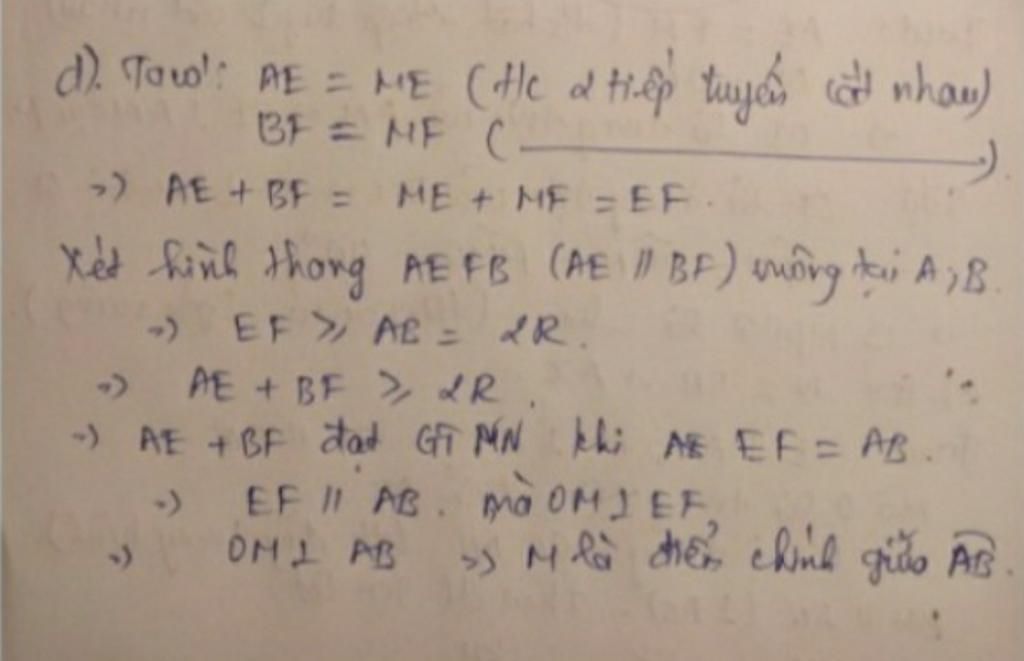 d). Ta có: AE = ME (t/c 2 tiếp tuyến cắt nhau)
BF = MF ( ).
=> AE + BF = ME + MF = EF.
Xét hình thang AEFB (AE // BF) vuông tại A; B.
=> EF ⩾ AB = 2R.
=> AE + BF ⩾ 2R.
=> AE + BF đạt GTNN khi EF = AB.
=> EF // AB. mà OM⊥EF
=> OM⊥ AB => M là điểm chính giữa AB.